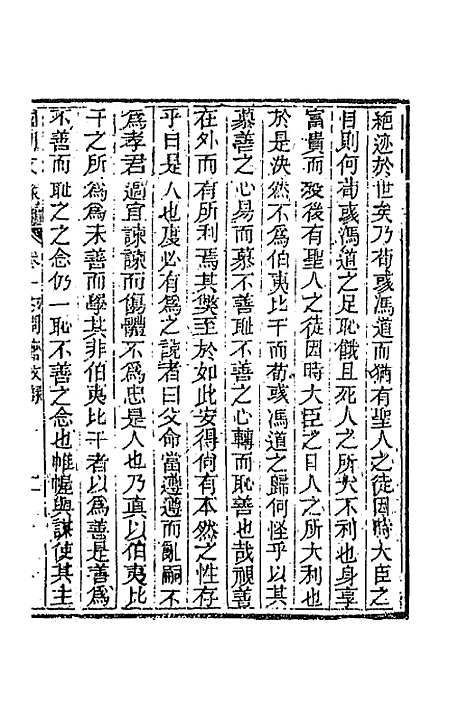 絕迹於世矣乃荀彧馮道而猶有聖人之徒因時大臣之
目則何荀彧馮道之足恥餓且死人之所大不利也身享
富貴而歿後有聖人之徒因時大臣之目人之所大利也
於是決然不爲伯夷比干而荀彧馮道之歸何怪乎以其
慕善之心易而慕不善恥不善之心轉而恥善也哉視善
在外而有所利焉其獘至於如此安得尙有本然之性存
乎曰是人也度必有爲之說者曰父命當遵遵而亂嗣不
爲孝君過宜諫諫而傷體不爲忠是人也乃真以伯夷比
干之所爲爲未善而學其非伯夷比干者以爲善是善爲
不善而恥之之念仍一恥不善之念也帷幄與謀使其主